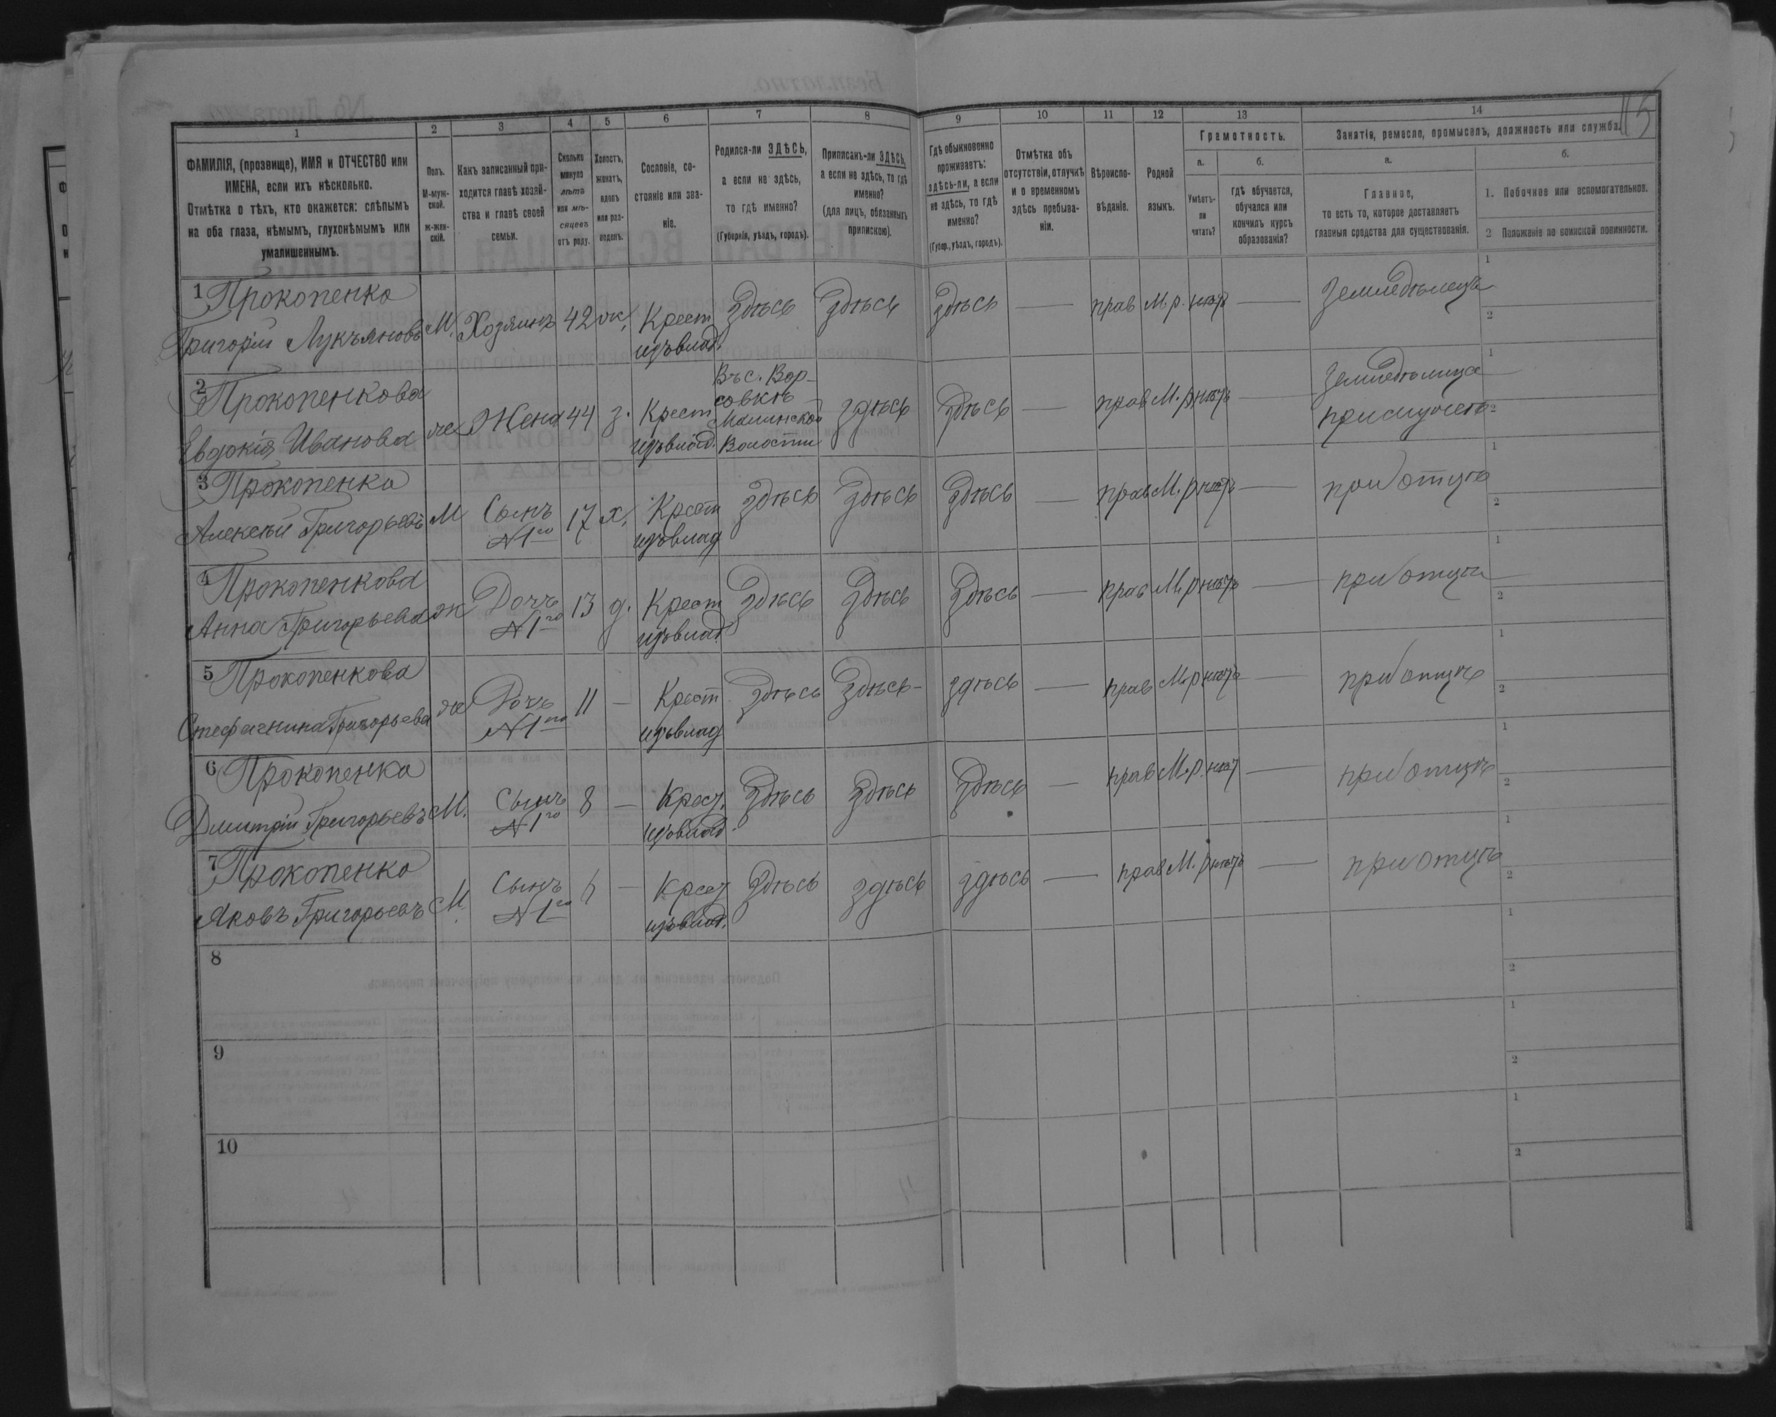 115
1 2 3 4 5 6 7 8 9 10 11 12 13 14
ФАМИЛІЯ, (прозвище), ИМЯ и ОТЧЕСТВО или
ИМЕНА, если ихъ нѣсколько.
Отмѣтка о тѣхъ, кто окажется: слѣпымъ
на оба глаза, нѣмымъ, глухонѣмымъ или
умалишеннымъ.
Полъ.
М-муж-
ской.
ж-жен-
скій.
Какъ записанный при-
ходится главѣ хозяй-
ства и главѣ своей
семьи.
Сколько
минуло
лѣтъ
или мѣ-
сяцевъ
отъ роду.
Холостъ,
женатъ,
вдовъ
или раз-
веденъ.
Сословіе, со-
стояніе или зва-
ніе.
Родился-ли ЗДѢСЬ,
а если не здѣсь,
то гдѣ именно?
(Губернія, уѣздъ, городъ).
Приписанъ-ли ЗДѢСЬ,
а если не здѣсь, то гдѣ
именно?
(для лицъ, обязанныхъ
припискою).
Гдѣ обыкновенно
проживаетъ:
здѣсь-ли, а если
не здѣсь, то гдѣ
именно?
(Губер., уѣздъ, городъ).
Отмѣтка объ
отсутствіи, отлучкѣ
и о временномъ
здѣсь пребыва-
ніи.
Вѣроиспо-
вѣданіе.
Родной
языкъ.
Грамотность.
а.
Умѣетъ-
ли
читать?
б.
гдѣ обучается,
обучался или
кончилъ курсъ
образованія?
Занятіе, ремесло, промыселъ, должность или служба.
а.
Главное,
то есть то, которое доставляетъ
главныя средства для существованія.
б.
1. Побочное или вспомогательное.
2 Положеніе по воинской повинности.
1 Прокопенко
Григорій Лукьяновъ М. Хозяинъ 42 ж. Крест здѣсь здѣсь здѣсь — прав М.р. нѣтъ — Земледѣлецъ 1
изъ влад. 2
2 Прокопенкова
Евдокія Иванова ж Жена 44 з. Крест
изъ влад. Въ с. Вор-
совкѣ
Малинской
Волости здѣсь здѣсь — прав М.р нѣтъ — Земледѣлица 1
при мужѣ 2
3 Прокопенко
Алексѣй Григорьевъ М Сынъ 17 х. Крест здѣсь здѣсь здѣсь — прав М.р нѣтъ — при отцѣ 1
№ 1го изъ влад 2
4 Прокопенкова
Анна Григорьева ж Дочь 13 д. Крест здѣсь здѣсь здѣсь — прав М.р нѣтъ — при отцѣ 1
№ 1го изъ влад. 2
5 Прокопенкова
Стефанина Григорьева ж Дочь 11 — Крест здѣсь здѣсь- здѣсь — прав М.р нѣтъ — при отцѣ 1
№ 1го изъ влад 2
6 Прокопенко
Дмитрій Григорьевъ М. Сынъ 8 — Крест. здѣсь здѣсь здѣсь — прав М.р. нѣтъ — при отцѣ 1
№ 1го изъ влад. 2
7 Прокопенко
Яковъ Григорьевъ М. Сынъ — Крест здѣсь здѣсь здѣсь — прав М.р нѣтъ — при отцѣ 1
№ 1го изъ влад. 2
8 1
2
9 1
2
10 1
2